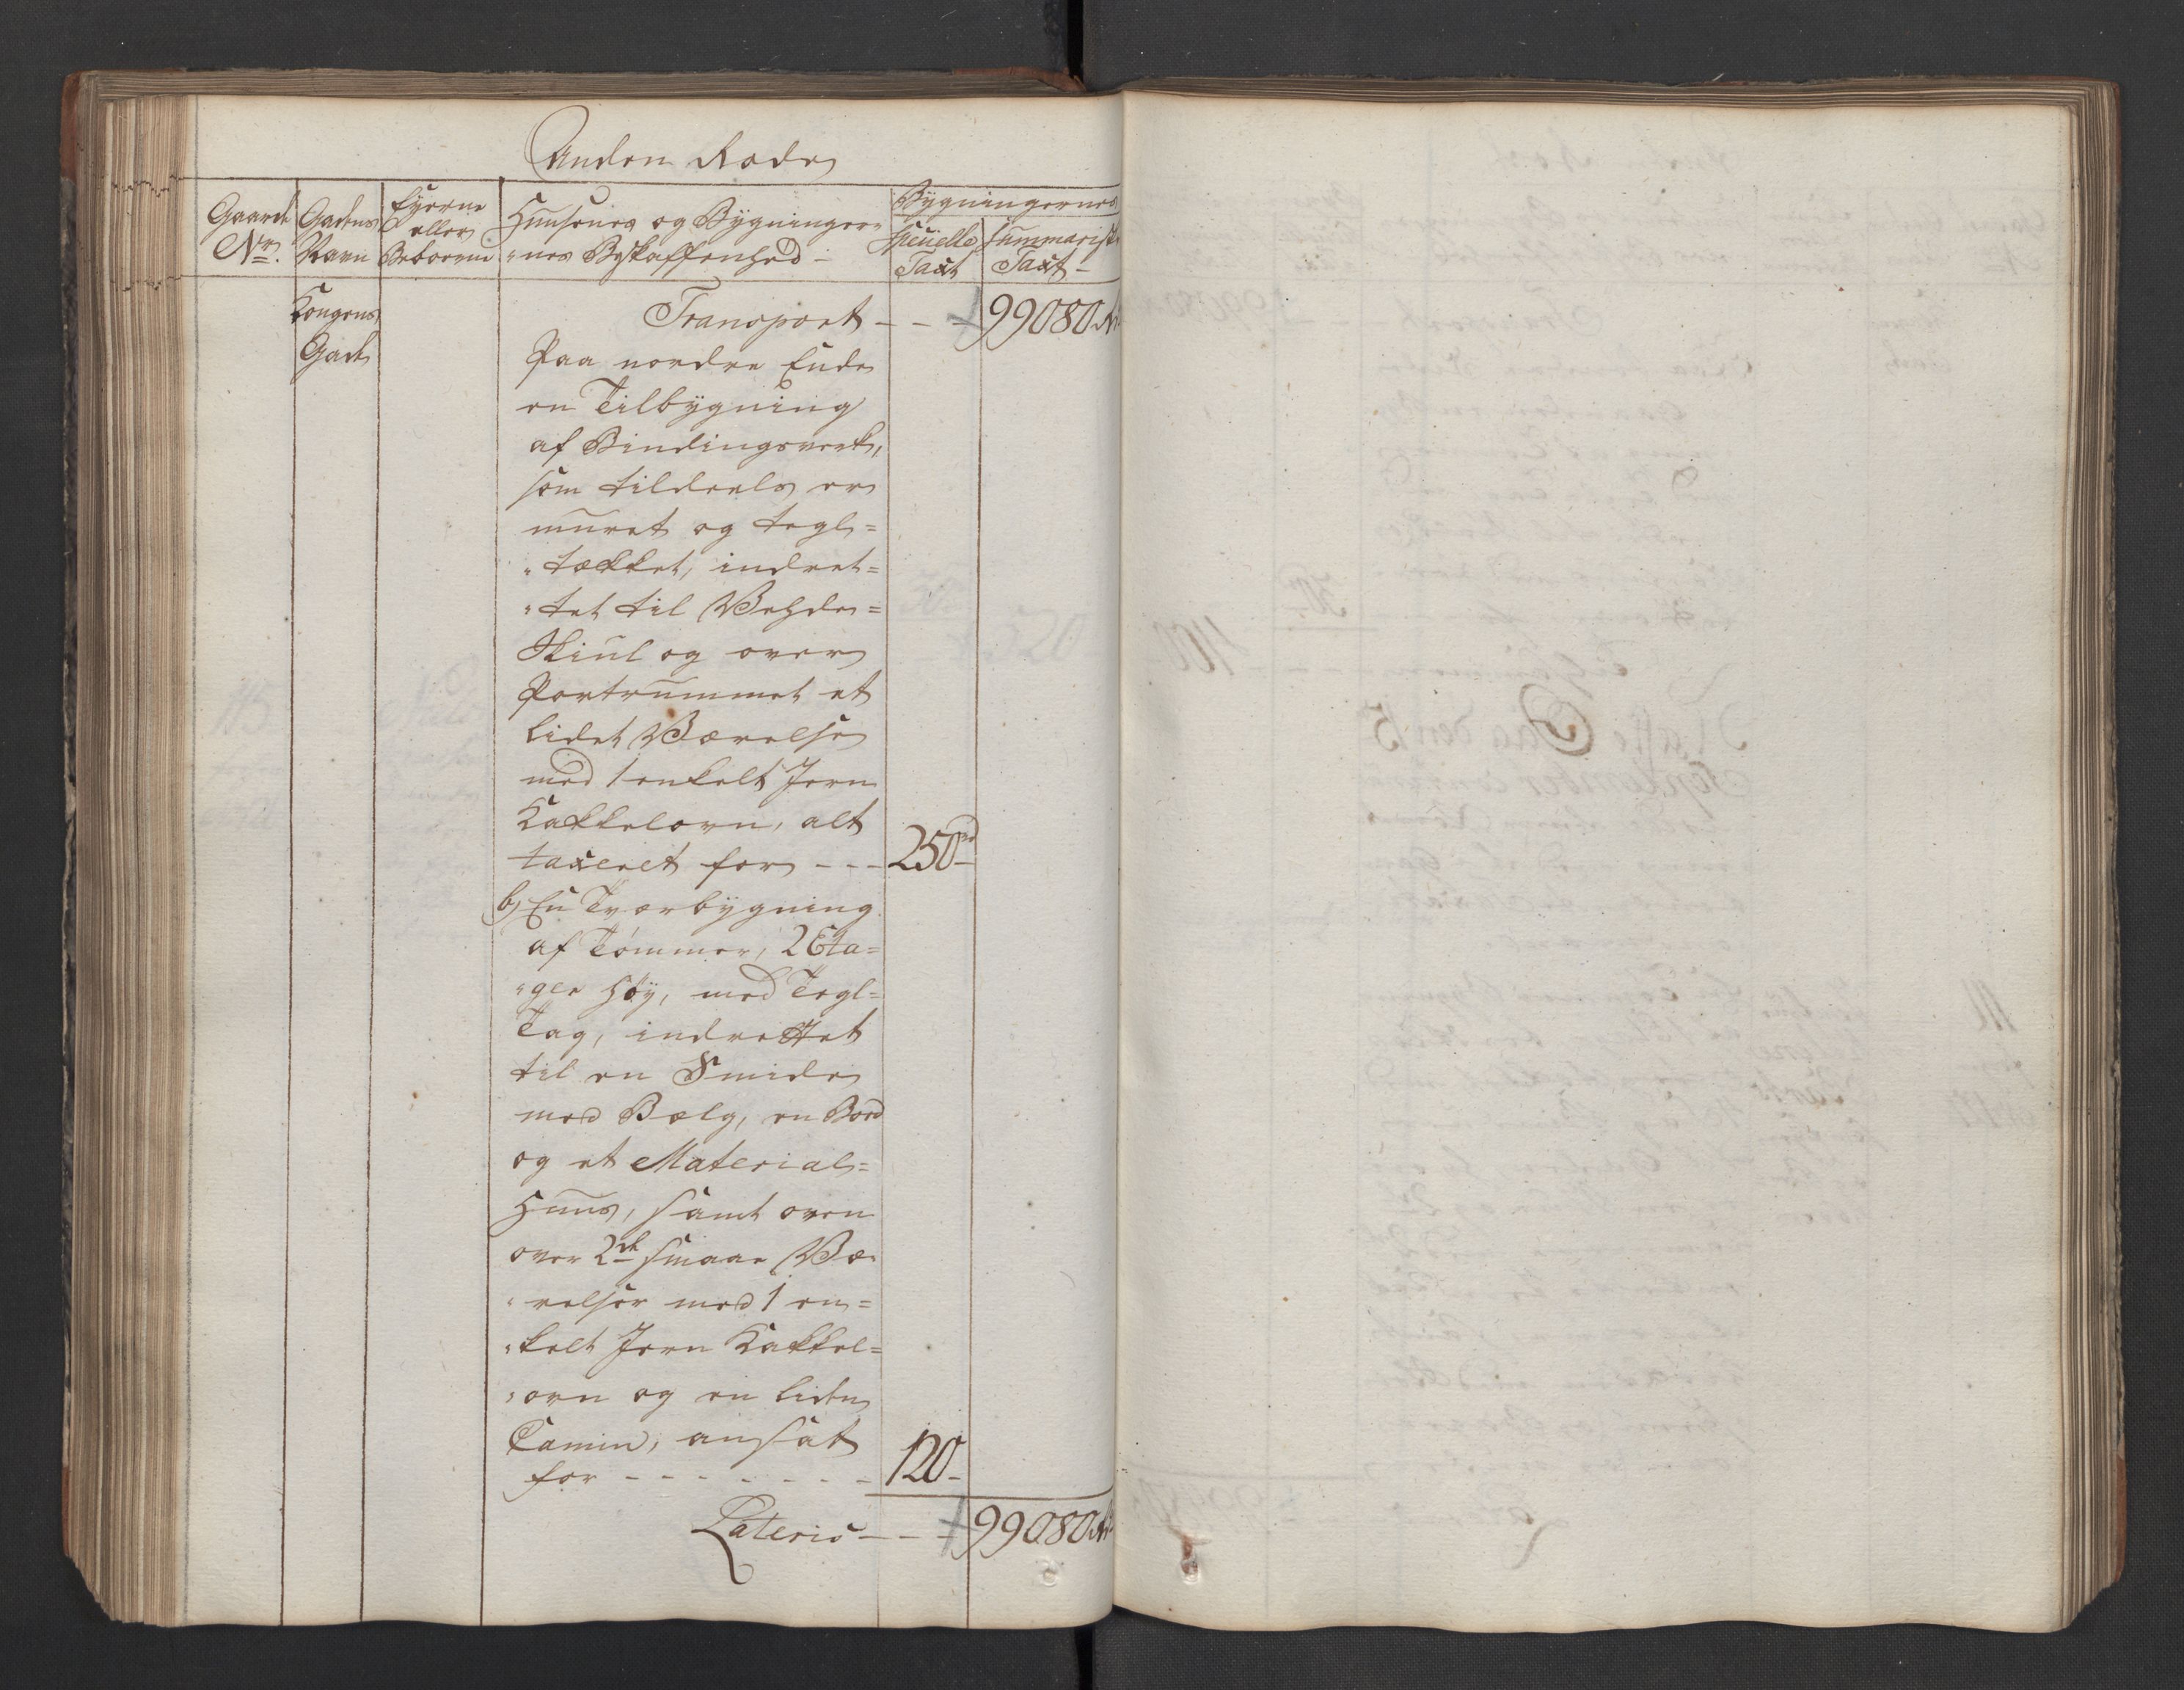 Anden Rode
Gaards No. | Gadens Navn | Eyerne eller Beboerne | Huusenes og Bÿgninger= "nes Beskaffenhed - | Bÿgningernes Specielle Taxt | Summariske Taxt -
Kongens
Gade
Transport - - - 99080 Rd
Paa nordre Ende
en Tilbÿgning
af Bindingsverk,
som tildeels er
muret og tegl=
"tækket, indret=
"tet til Vehde=
Skiul og over
Portrummet et
lidet Værelse
med 1 enkelt Jern
Kakkelovn, alt
taxeret for - - - 250 rd -
b) En Tværbÿgning
af Tømmer, 2 Eta=
"ger høÿ, med Tegl=
Tag, indrettet
til en Smide
med Bælg, en Bod
og et Material=
Huus, samt oven
over 2de smaae Væ
"relser med 1 en=
"kelt Jern Kakkel=
"ovn og en liden
Camin, ansat
for - - - - - - - 120 -
Lateris - - - 99080 Rd